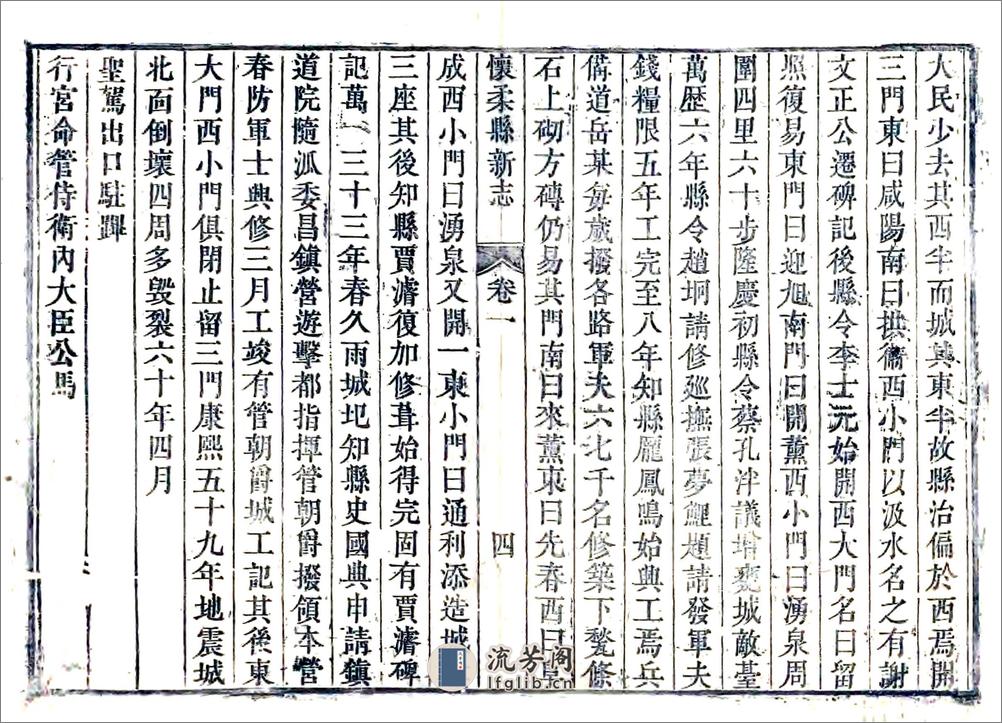 大民少去其西半而城其東半故縣治偏於西焉開
三門東曰咸陽南曰拱衞西小門以汲水名之有謝
文正公遷碑記後縣令李士元始開西大門名曰留
照復易東門曰迎旭南門曰開薰西小門曰湧泉周
圍四里六十步隆慶初縣令蔡孔泮議增甕城敵臺
萬歷六年縣令趙坰請修廵撫張夢鯉題請發軍夫
錢糧限五年工完至八年知縣龐鳳鳴始興工焉兵
備道岳某每歲撥各路軍夫六七千名修築下甃條
石上砌方磚仍易其門南曰來薰東曰先春西曰
懷柔縣新志
卷一
四
成西小門曰湧泉又開一東小門曰通利添造城
三座其後知縣賈濬復加修葺始得完固有賈濬碑
記萬
三十三年春久雨城圮知縣史國典申請鎮
道院隨派委昌鎮營遊擊都指揮管朝爵撥領本營
春防軍士興修三月工竣有管朝爵城工記其後東
大門西小門俱閉止留三門康熙五十九年地震城
北面倒壞四周多毀裂六十年四月
聖駕出口駐蹕
行宮命管侍衛內大臣公馬
流芳阁
lfglib.cn